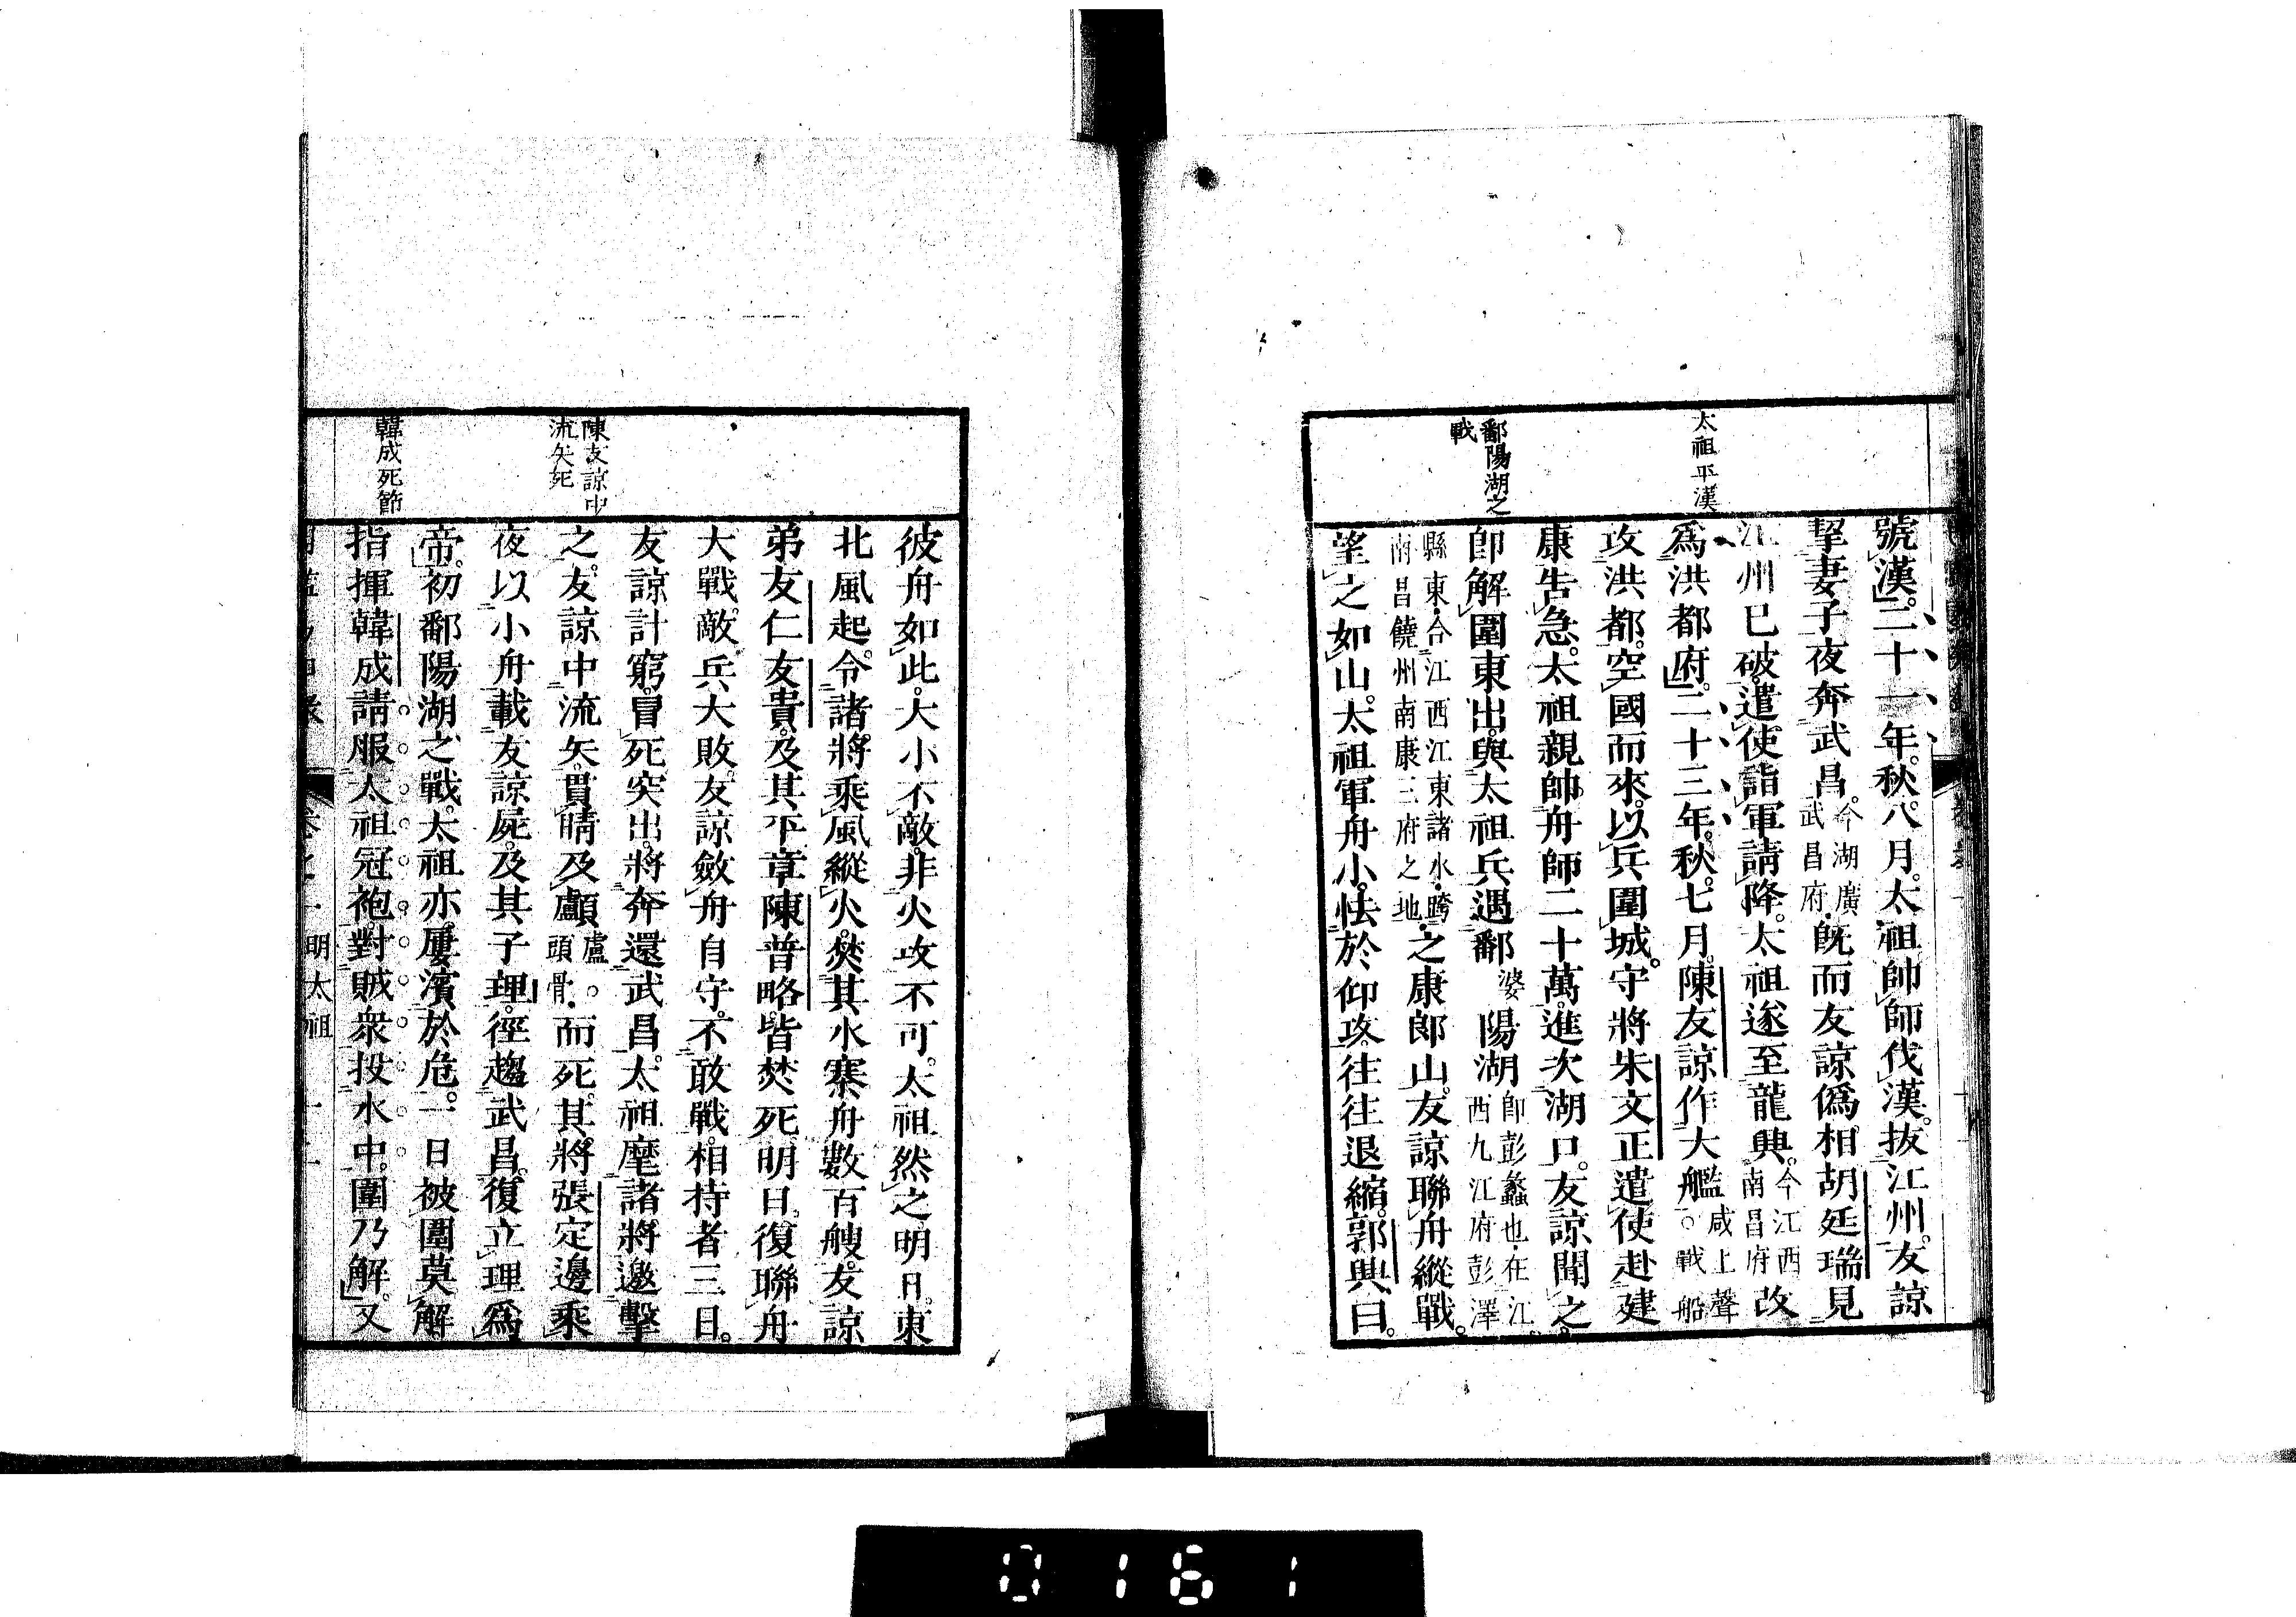 太祖平漢
鄱陽湖之
戰
號漢。二十一年。秋。八月。太祖帥師伐漢。拔江州。友諒
挈妻子夜奔武昌。今湖廣武昌府。旣而友諒僞相胡廷瑞見
江州已破。遣使詣軍請降。太祖遂至龍興。今江西南昌府改
爲洪都府。二十三年。秋。七月。陳友諒作大艦。咸上聲。戰船
攻洪都。空國而來。以兵圍城。守將朱文正遣使赴建
康告急。太祖親帥舟師二十萬。進次湖口。友諒聞之。
卽解圍東出。與太祖兵遇鄱婆陽湖卽彭蠡也。在江西九江府彭澤
縣東。合江西江東諸水。跨南昌饒州南康三府之地。之康郎山。友諒聯舟縱戰。
望之如山。太祖軍舟小。怯於仰攻。往往退縮。郭興曰。
陳友諒中
流矢死
韓成死節
彼舟如此。大小不敵。非火攻不可。太祖然之。明日。東
北風起。令諸將乘風縱火。焚其水寨舟數百艘。友諒
弟友仁友貴。及其平章陳普略。皆焚死。明日。復聯舟
大戰。敵兵大敗。友諒斂舟自守。不敢戰。相持者三日。
友諒計窮。冒死突出。將奔還武昌。太祖麾諸將邀擊
之。友諒中流矢。貫睛及顱盧。頭骨。而死。其將張定邊乘
夜以小舟載友諒屍。及其子理。徑趨武昌。復立理爲
帝。初鄱陽湖之戰。太祖亦屢濱於危。一日被圍莫解
指揮韓成請服太祖冠袍。對賊衆投水中。圍乃解。又
明太祖
0161